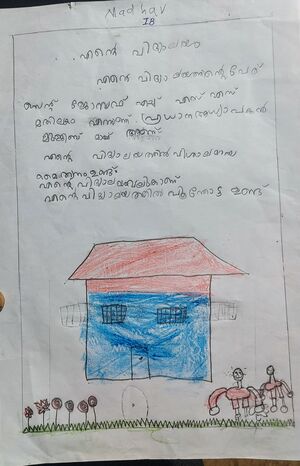 Madhav
IB
എന്റെ വിദ്യാലയം
എന്റെ വിദ്യാലയത്തിന്റെ പേര്
സെന്റ് ജോസഫ് എച്ച് എസ് എസ്
മതിലകം എന്നാണ്. പ്രധാനഅധ്യാപകൻ
മാഷ് ആണ്
എന്റെ വിദ്യാലയത്തിൽ വിശാലമായ
മൈതാനം ഉണ്ട്
എന്റെ
എന്റെ വിദ്യാലയത്തിൽ പൂന്തോട്ടം ഉണ്ട്